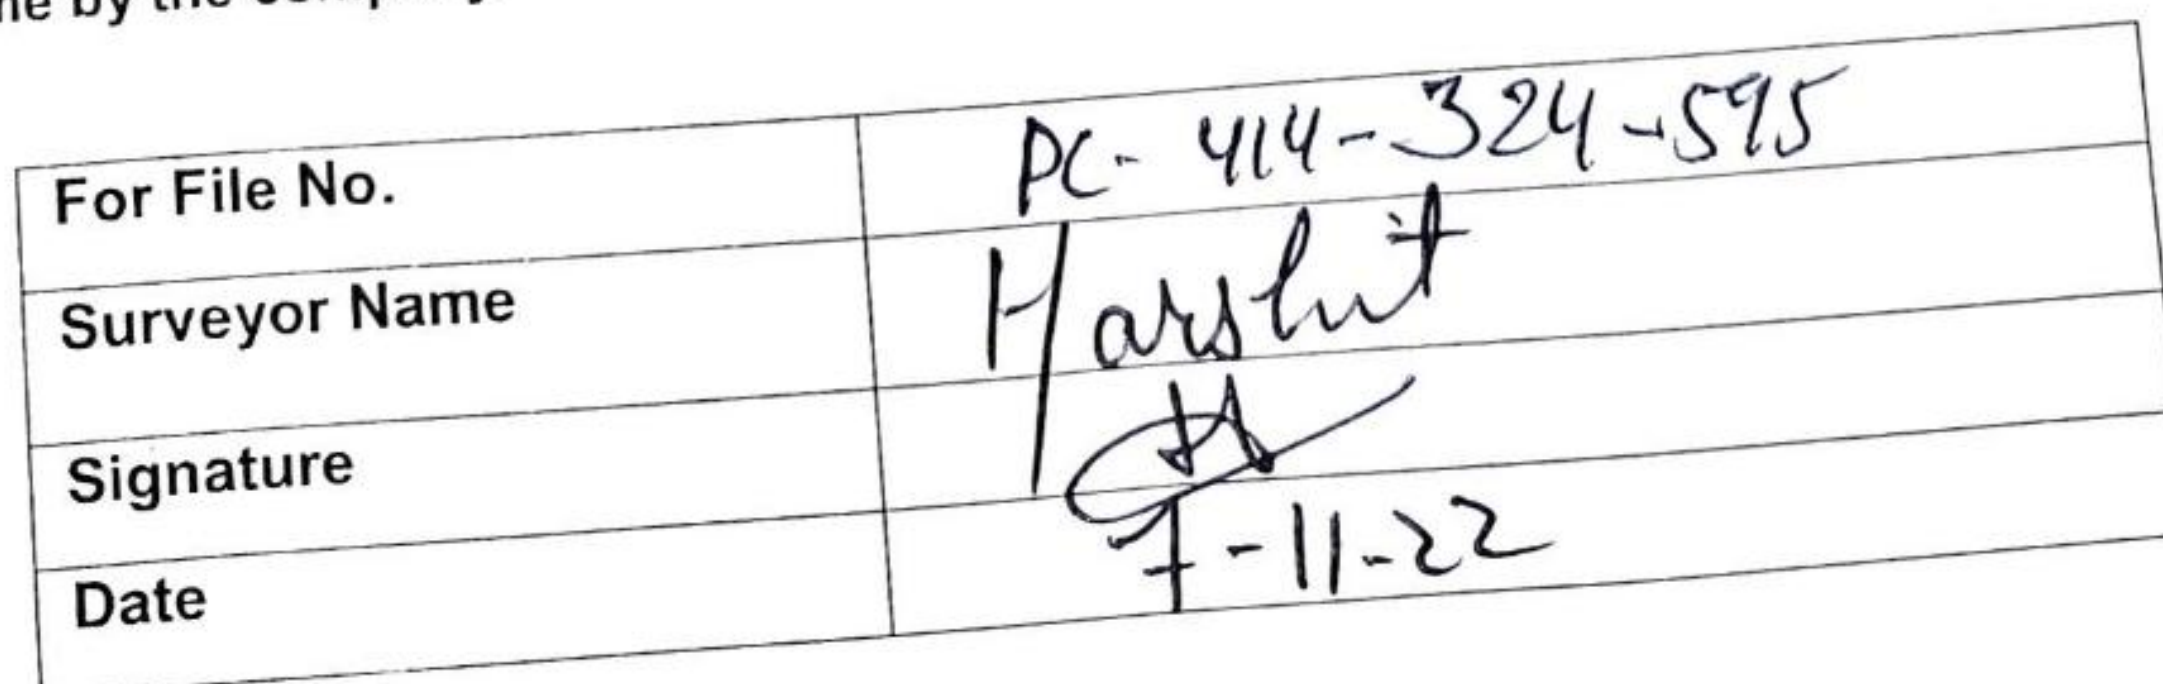 by the company.
For File No. PC-414-324-595
Surveyor Name Harshit
Signature
Date 7-11-22